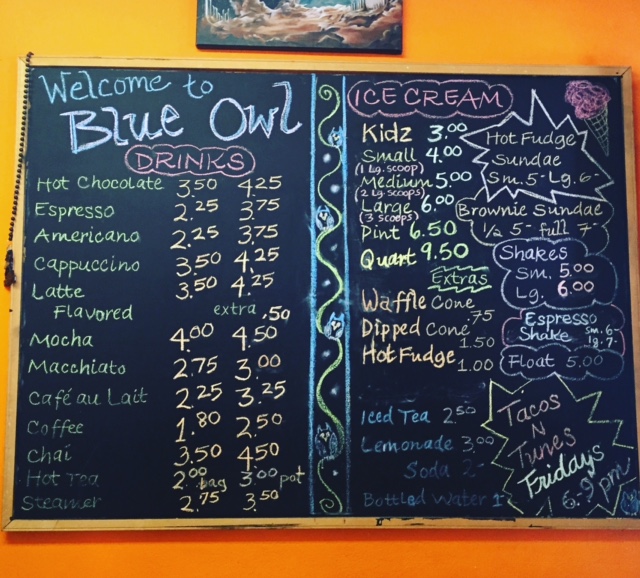 Welcome to
Blue Owl
DRINKS
Hot Chocolate 3.50 4.25
Espresso 2.25 3.75
Americano 2.25 3.75
Cappuccino 3.50 4.25
Latte 3.50 4.25
Flavored extra .50
Mocha 4.00 4.50
Macchiato 2.75 3.00
Café au Lait 2.25 3.25
Coffee 1.80 2.50
Chai 3.50 4.50
Hot Tea 2.00 bag 3.00 pot
Steamer 2.75 3.50
ICE CREAM
Kidz 3.00
Small 4.00
(1 Lg. scoop)
Medium 5.00
(2 Lg scoops)
Large 6.00
(3 scoops)
Pint 6.50
Quart 9.50
Extras
Waffle Cone .75
Dipped Cone 1.50
Hot Fudge 1.00
Iced Tea 2.50
Lemonade 3.00
Soda 2-
Bottled Water 1-
Hot Fudge
Sundae
Sm. 5- Lg. 6-
Brownie Sundae
1/2 5- full 7-
Shakes
Sm. 5.00
Lg. 6.00
Espresso
Shake sm. 6-
lg. 7-
Float 5.00
Tacos
N
Tunes
Fridays
6-9 pm